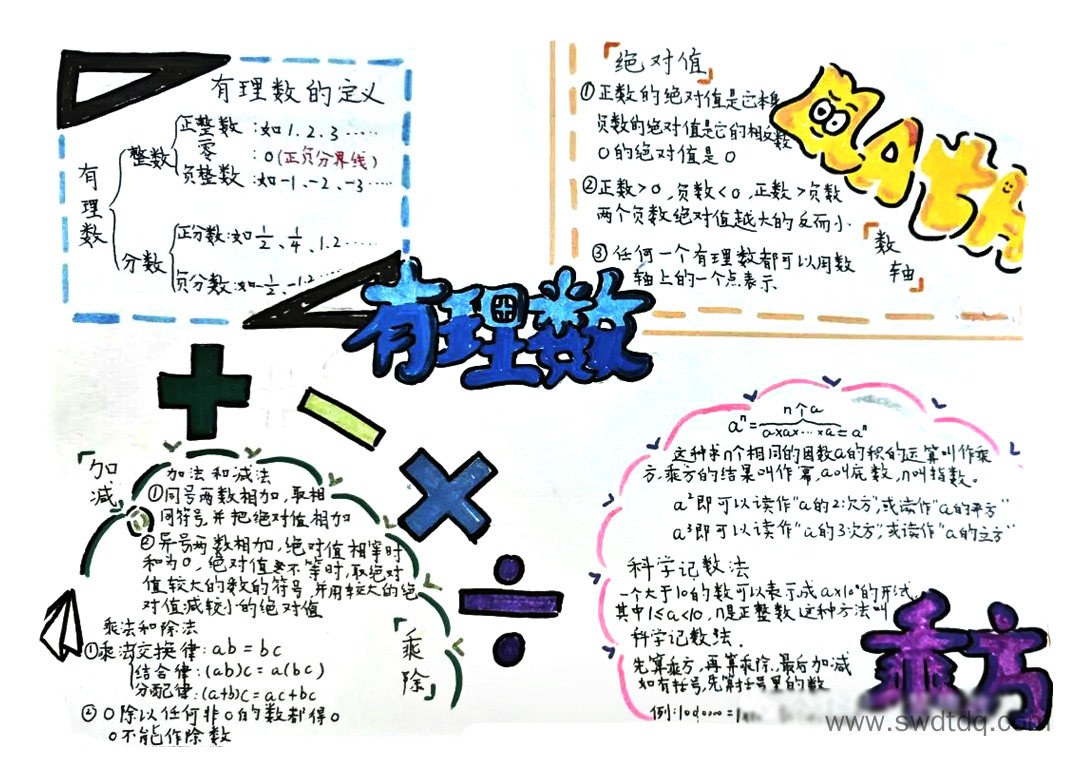 有理数的定义
有理数
整数
正整数：如1、2、3……
零：0(正负分界线)
负整数：如-1、-2、-3……
分数
正分数：如1/2、1/4、1.2……
负分数：如-1/2、-1.2……
绝对值
①正数的绝对值是它本身
负数的绝对值是它的相反数
0的绝对值是0
②正数>0，负数<0，正数>负数
两个负数绝对值越大的反而小.
③任何一个有理数都可以用数
轴上的一个点表示
数轴
MATH
有理数
加减
加法和减法
①同号两数相加，取相
同符号，并把绝对值相加
②异号两数相加，绝对值相等时
和为0，绝对值不等时，取绝对
值较大的数的符号，并用较大的绝
对值减较小的绝对值
乘法和除法
①乘法交换律：ab=bc
结合律：(ab)c=a(bc)
分配律：(a+b)c=ac+bc
②0除以任何非0的数都得0
0不能作除数
乘除
n个a
aⁿ=a×a×…×a=aⁿ
这种求n个相同的因数a的积的运算叫作乘
方，乘方的结果叫作幂，a叫底数，n叫指数。
a²即可以读作“a的2次方”，或读作“a的平方”
a³即可以读作“a的3次方”，或读作“a的立方”
科学记数法
一个大于10的数可以表示成a×10ⁿ的形式，
其中1≤a<10，n是正整数这种方法叫
科学记数法.
先算乘方，再算乘除，最后加减
如有括号，先算括号里的数
例：
乘方
www.swdtdq.com